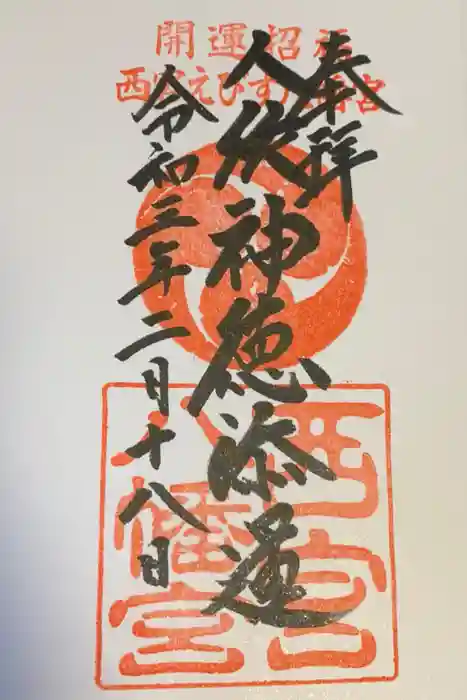 開運招福
西宮えびす八幡宮
奉拝
人依神徳添運
令和三年二月十八日
西宮
八幡宮